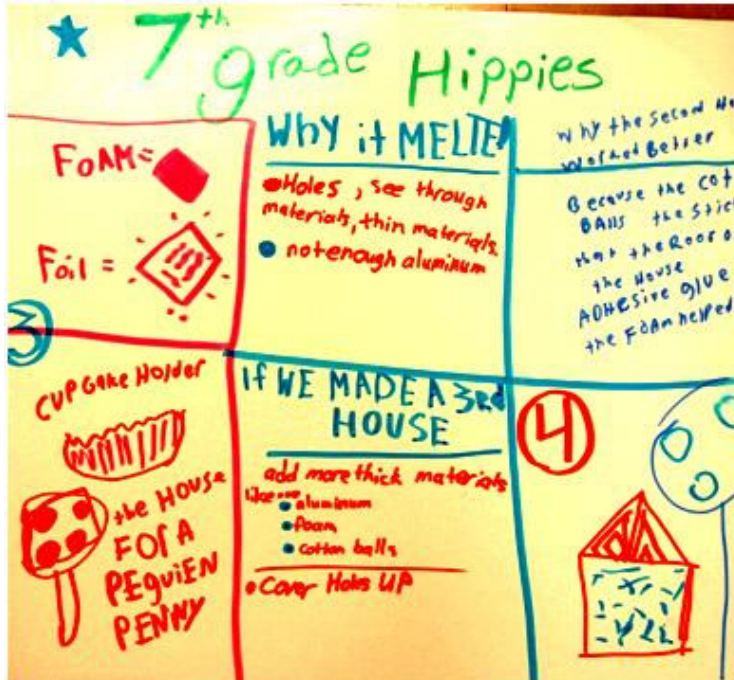 7th grade Hippies
FOAM=
Foil =
Why it MELTE
Holes, see through
materials, thin materials.
not enough aluminum
Why the Second
Worked Better
Because the
BALLS the
that the Roof
the House
ADHesive glue
the FOAM helped
3
CUP Cake Holder
the HOUSE
FOR A
PEguiEN
PENNY
If WE MADE A 3rd
HOUSE
add more thick materials
like
aluminum
foam
cotton balls
Cover Holes UP
4